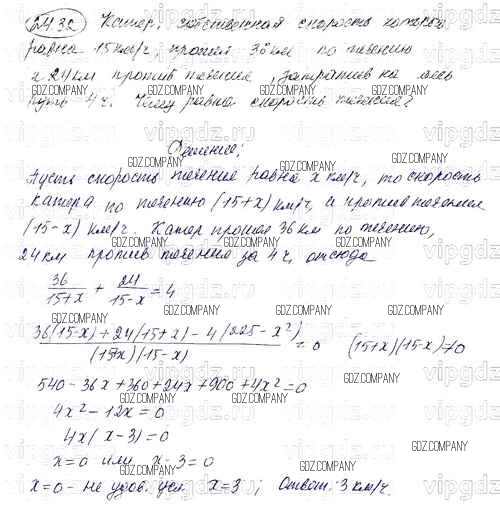 24.32 Катер, собственная скорость которого
равна 15 км/ч, прошёл 36 км по течению
и 24 км против течения, затратив на весь
путь 4 ч. Чему равна скорость течения?
Решение:
Пусть скорость течения равна x км/ч, то скорость
катера по течению (15+x) км/ч, а против течения
(15-x) км/ч. Катер прошел 36 км по течению,
24 км против течения за 4 ч, отсюда
36/(15+x) + 24/(15-x) = 4
(36(15-x)+24(15+x)-4(225-x²))/((15+x)(15-x)) = 0 (15+x)(15-x)≠0
540-36x+360+24x+900+4x²=0
4x²-12x=0
4x(x-3)=0
x=0 или x-3=0
x=0 - не удов. усл. x=3; Ответ: 3 км/ч.